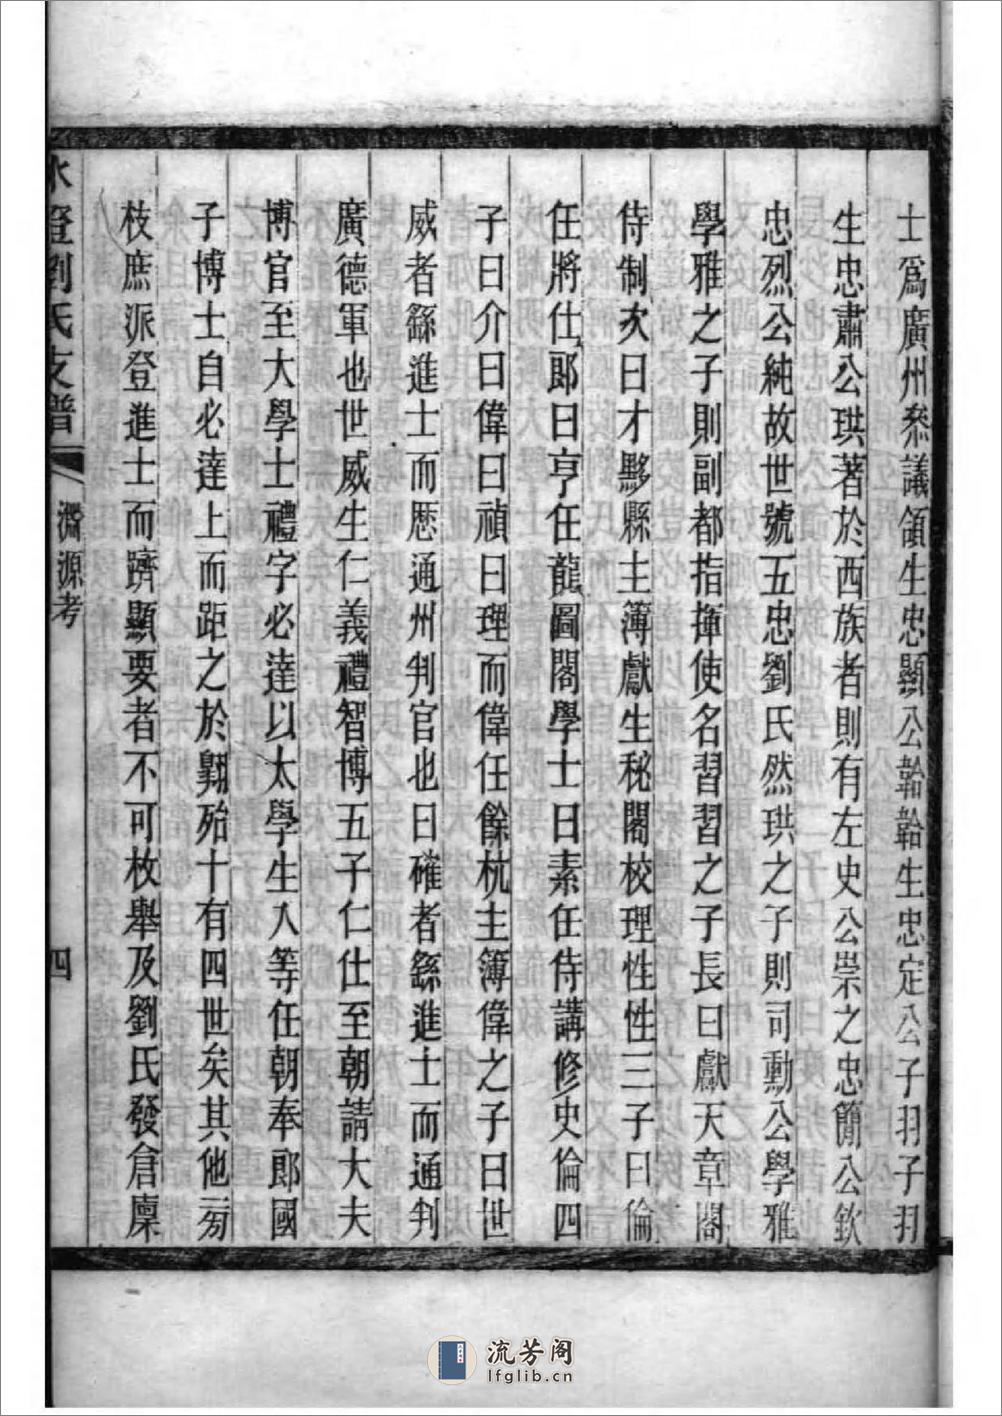 士爲廣州叅議領生忠顯公韐韐生忠定公子羽子羽
生忠肅公珙著於西族者則有左史公崇之忠簡公欽
忠烈公純故世號五忠劉氏然珙之子則司勳公學雅
學雅之子則副都指揮使名習習之子長曰獻天章閣
侍制次曰才黟縣主簿獻生秘閣校理性性三子曰倫
任將仕郎曰亨任龍圖閣學士曰素任侍講修史倫四
子曰介曰偉曰禎曰理而偉任餘杭主簿偉之子曰世
威者繇進士而歷通州判官也曰確者繇進士而通判
廣德軍也世威生仁義禮智博五子仁仕至朝請大夫
博官至大學士禮字必達以太學生入等任朝奉郎國
子博士自必達上而距之於翺殆十有四世矣其他㫄
枝庶派登進士而躋顯要者不可枚舉及劉氏發倉廩
劉氏支譜
淵源考
四
流芳阁
lfglib.cn